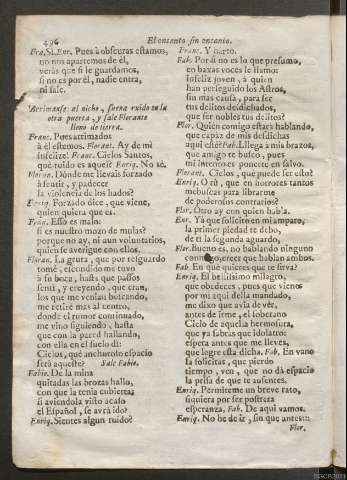 496
El encanto sin encanto.
Fra. Si. Enr. Pues à obscuras estamos,
no nos apartemos de èl,
veràs que si le guardamos,
si no es por èl, nadie entra,
ni sale.
Arrimanse al nicho, suena ruido en la
otra puerta, y sale Florante
lleno de tierra.
Franc. Pues arrimados
à èl estemos. Florant. Ay de mi
infelize! Franc. Cielos Santos,
què ruido es aquel? Enriq. No sè.
Floran. Dònde me llevais forzado
à sentir, y padecer
la violencia de los hados?
Enriq. Forzado dice, que viene,
quien quiera que es.
Fran. Esso es malo:
si es nuestro mozo de mulas?
porque no ay, ni aun voluntarios,
quien se averigue con ellos.
Floran. La gruta, que por resguardo
tomè, escondido me tuvo
à su boca, hasta que passos
sentì, y creyendo, que eran,
los que me venian buscando,
me retirè mas al centro,
donde el rumor continuado,
me vino siguiendo, hasta
que con la pared hallando,
con ella en el suelo dì:
Cielos, què anchuroso espacio
serà aqueste? Sale Fabio.
Fabio. De la mina
quitadas las brozas hallo,
con que la tenia cubierta;
si aviendola visto acaso
el Español, se avrà ido?
Enriq. Sientes algun ruido?
Franc. Y harto.
Fab. Por si no es lo que presumo,
en baxas voces le llamo:
Infeliz joven, à quien
han perseguido los Astros,
sin mas causa, para ser
tus delitos desdichados,
que ser nobles tus delitos?
Flor. Quièn conmigo estarà hablando,
que capàz de mis desdichas
aqui estè? Fab. Llega à mis brazos,
que amigo te busco, pues
mi intencion es ponerte en salvo.
Florant. Cielos, què puede ser esto?
Enriq. O tù, que en horrores tantos
me buscas para librarme
de poderosos contrarios?
Flor. Otro ay con quien habla.
Enr. Yà que solicito en mi amparo,
la primer piedad te debo,
de tì la segunda aguardo.
Flor. Bueno es, no hablando ninguno
conmigo, creer que hablan ambos.
Fab. En què quieres que te sirva?
Enriq. El bellisimo milagro,
que obedeces, pues que vienes
por mi aqui della mandado,
me dixo que avia de vèr,
antes de irme, el soberano
Cielo de aquella hermosura,
que yà sabràs que idolatro:
espera antes que me lleves,
que logre esta dicha. Fab. En vano
la solicitas, que pierdo
tiempo, y en, que no dà espacio
la prisa de que te ausentes.
Enriq. Permiteme un breve rato,
siquiera por ser postrera
esperanza. Fab. De aqui vamos.
Enriq. No he de ir, sin que antes:::
Flor.